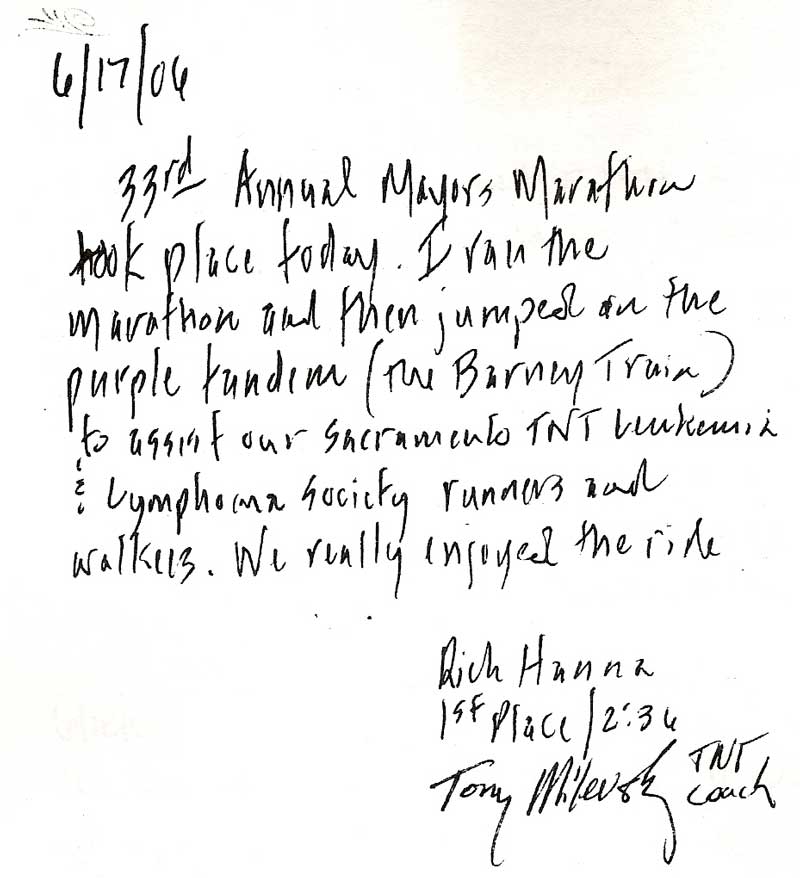 6/17/06
33rd Annual Mayors Marathon
took place today. I ran the
marathon and then jumped on the
purple tandem (the Barney Train)
to assist our Sacramento TNT Leukemia
& Lymphoma Society runners and
walkers. We really enjoyed the ride
Rich Hanna
1st Place/2:36
Tony Milevsky TNT
coach